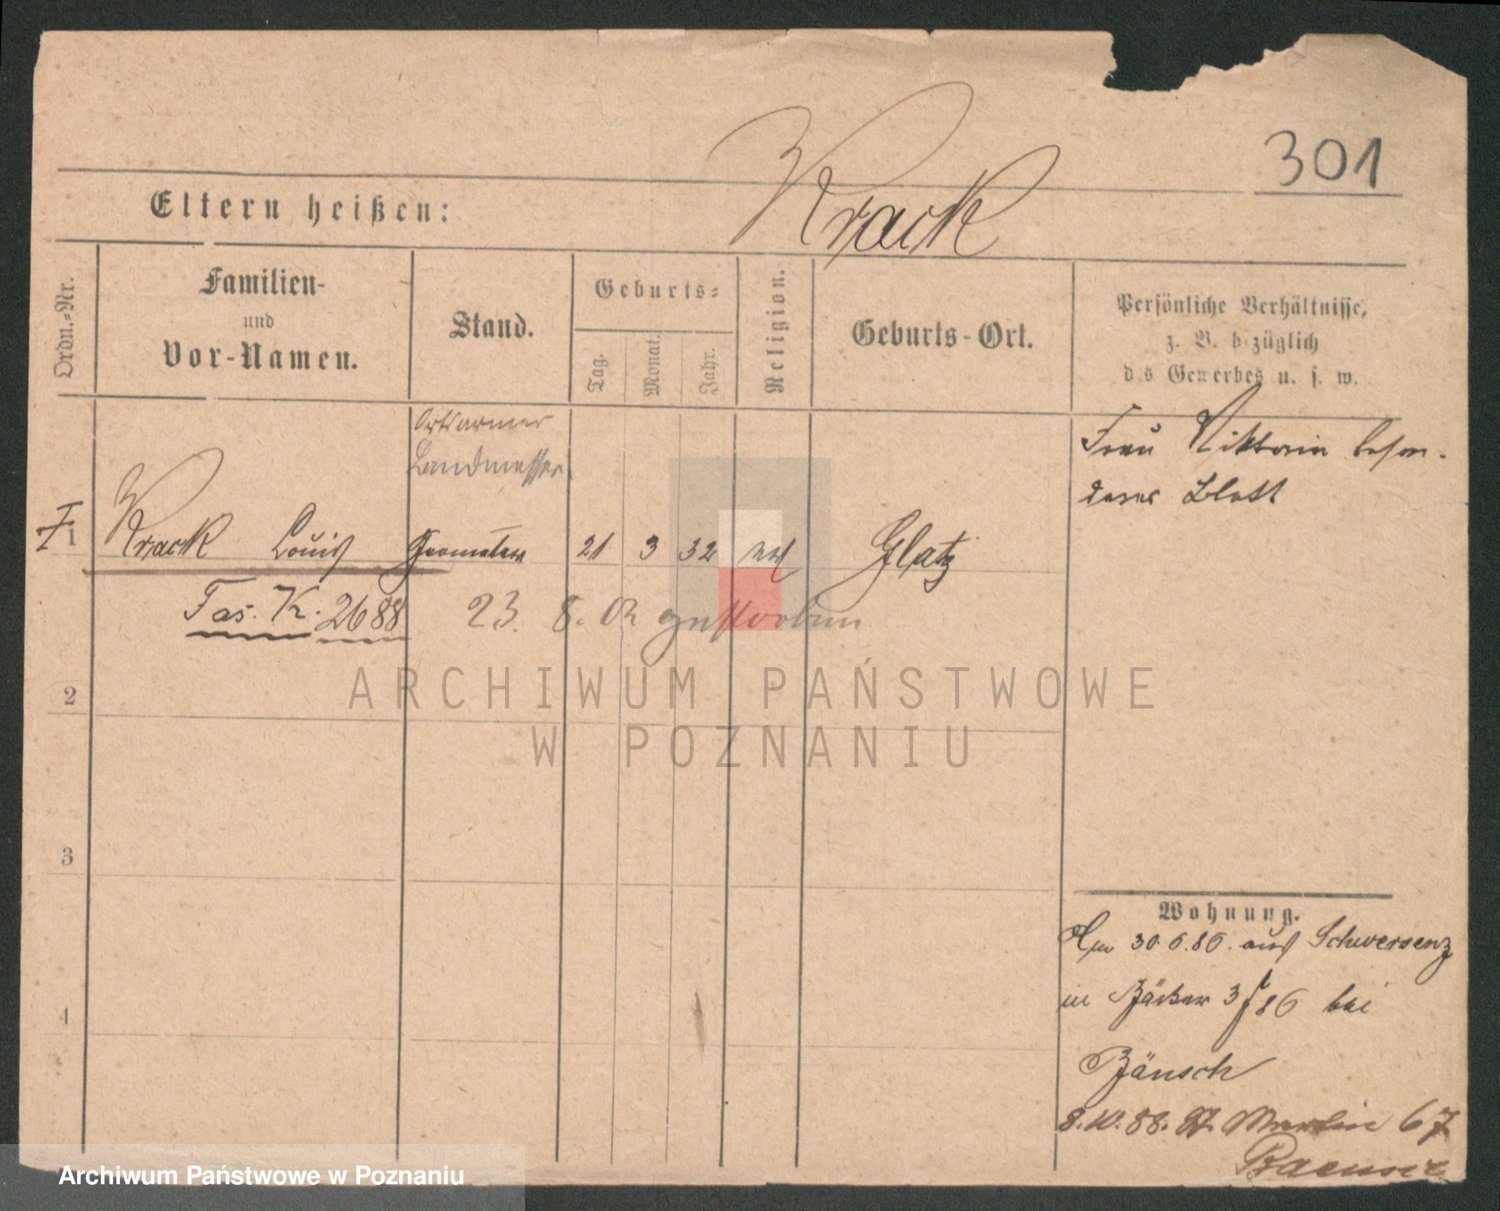 301
Krack
Eltern heißen:
Ordn.-Nr.
Familien-
und
Vor-Namen.
Stand.
Geburts-
Tag.
Monat.
Jahr.
Religion.
Geburts-Ort.
Persönliche Verhältnisse,
z. B. bezüglich
des Gewerbes u. s. w.
Ortsarmer
Landmesser
Frau Viktoria beson-
deres Blatt
1 Krack Louis Geometer 21 3 32 Glatz
Tas. K. 2688 23. 8. 02 gestorben
2
3
4
ARCHIWUM PAŃSTWOWE
W POZNANIU
Wohnung.
30.6.86. aus Schwersenz
in 3 86 bei
Bänsch
8.10.88. St. Martin 67
Archiwum Państwowe w Poznaniu